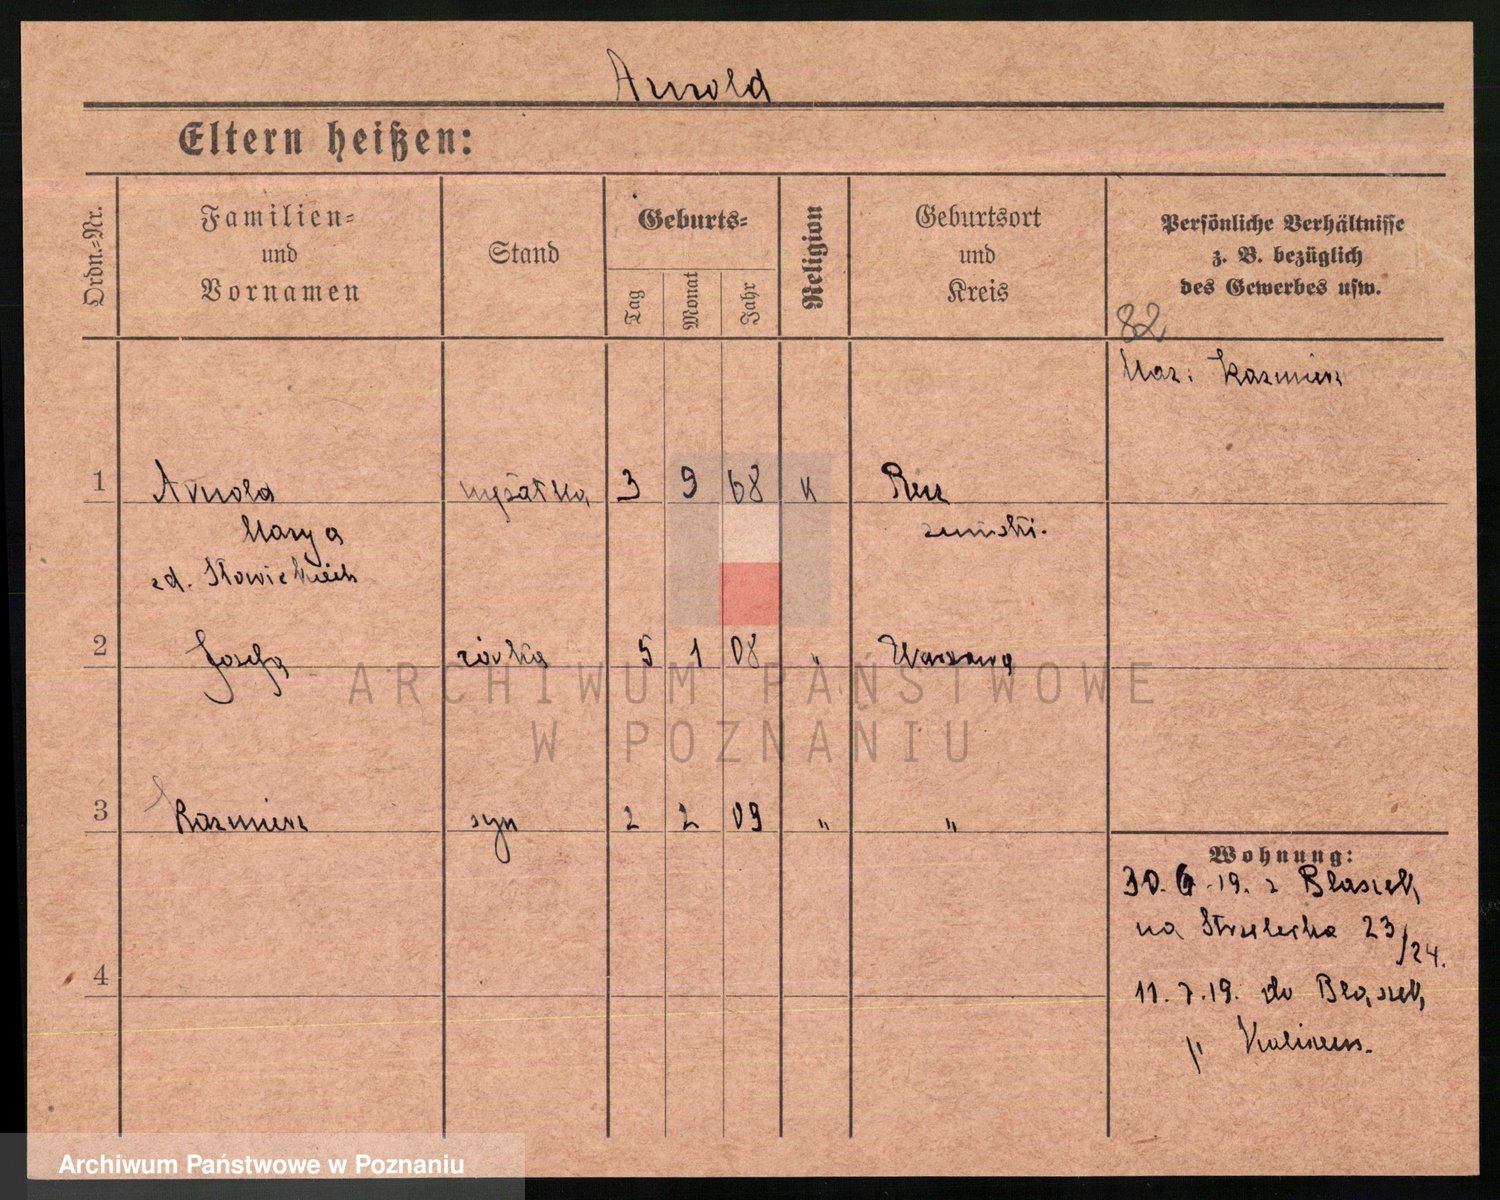 Arnold
Eltern heißen:
Ordn.-Nr.
Familien-
und
Vornamen
Stand
Geburts-
Tag
Monat
Jahr
Religion
Geburtsort
und
Kreis
Persönliche Verhältnisse
z. B. bezüglich
des Gewerbes usw.
82
Kazmierz
1 Arnold 3 9 68 K
Marya
zd. Słowickich
2 Josefa córka 5 1 08 " Warszawa
3 Kazmierz syn 2 2 09 " "
4
Wohnung:
30. 6. 19. z Błaszek
na Strzelecka 23/24.
11. 7. 19. do Błaszek
p
ARCHIWUM PAŃSTWOWE
W POZNANIU
Archiwum Państwowe w Poznaniu